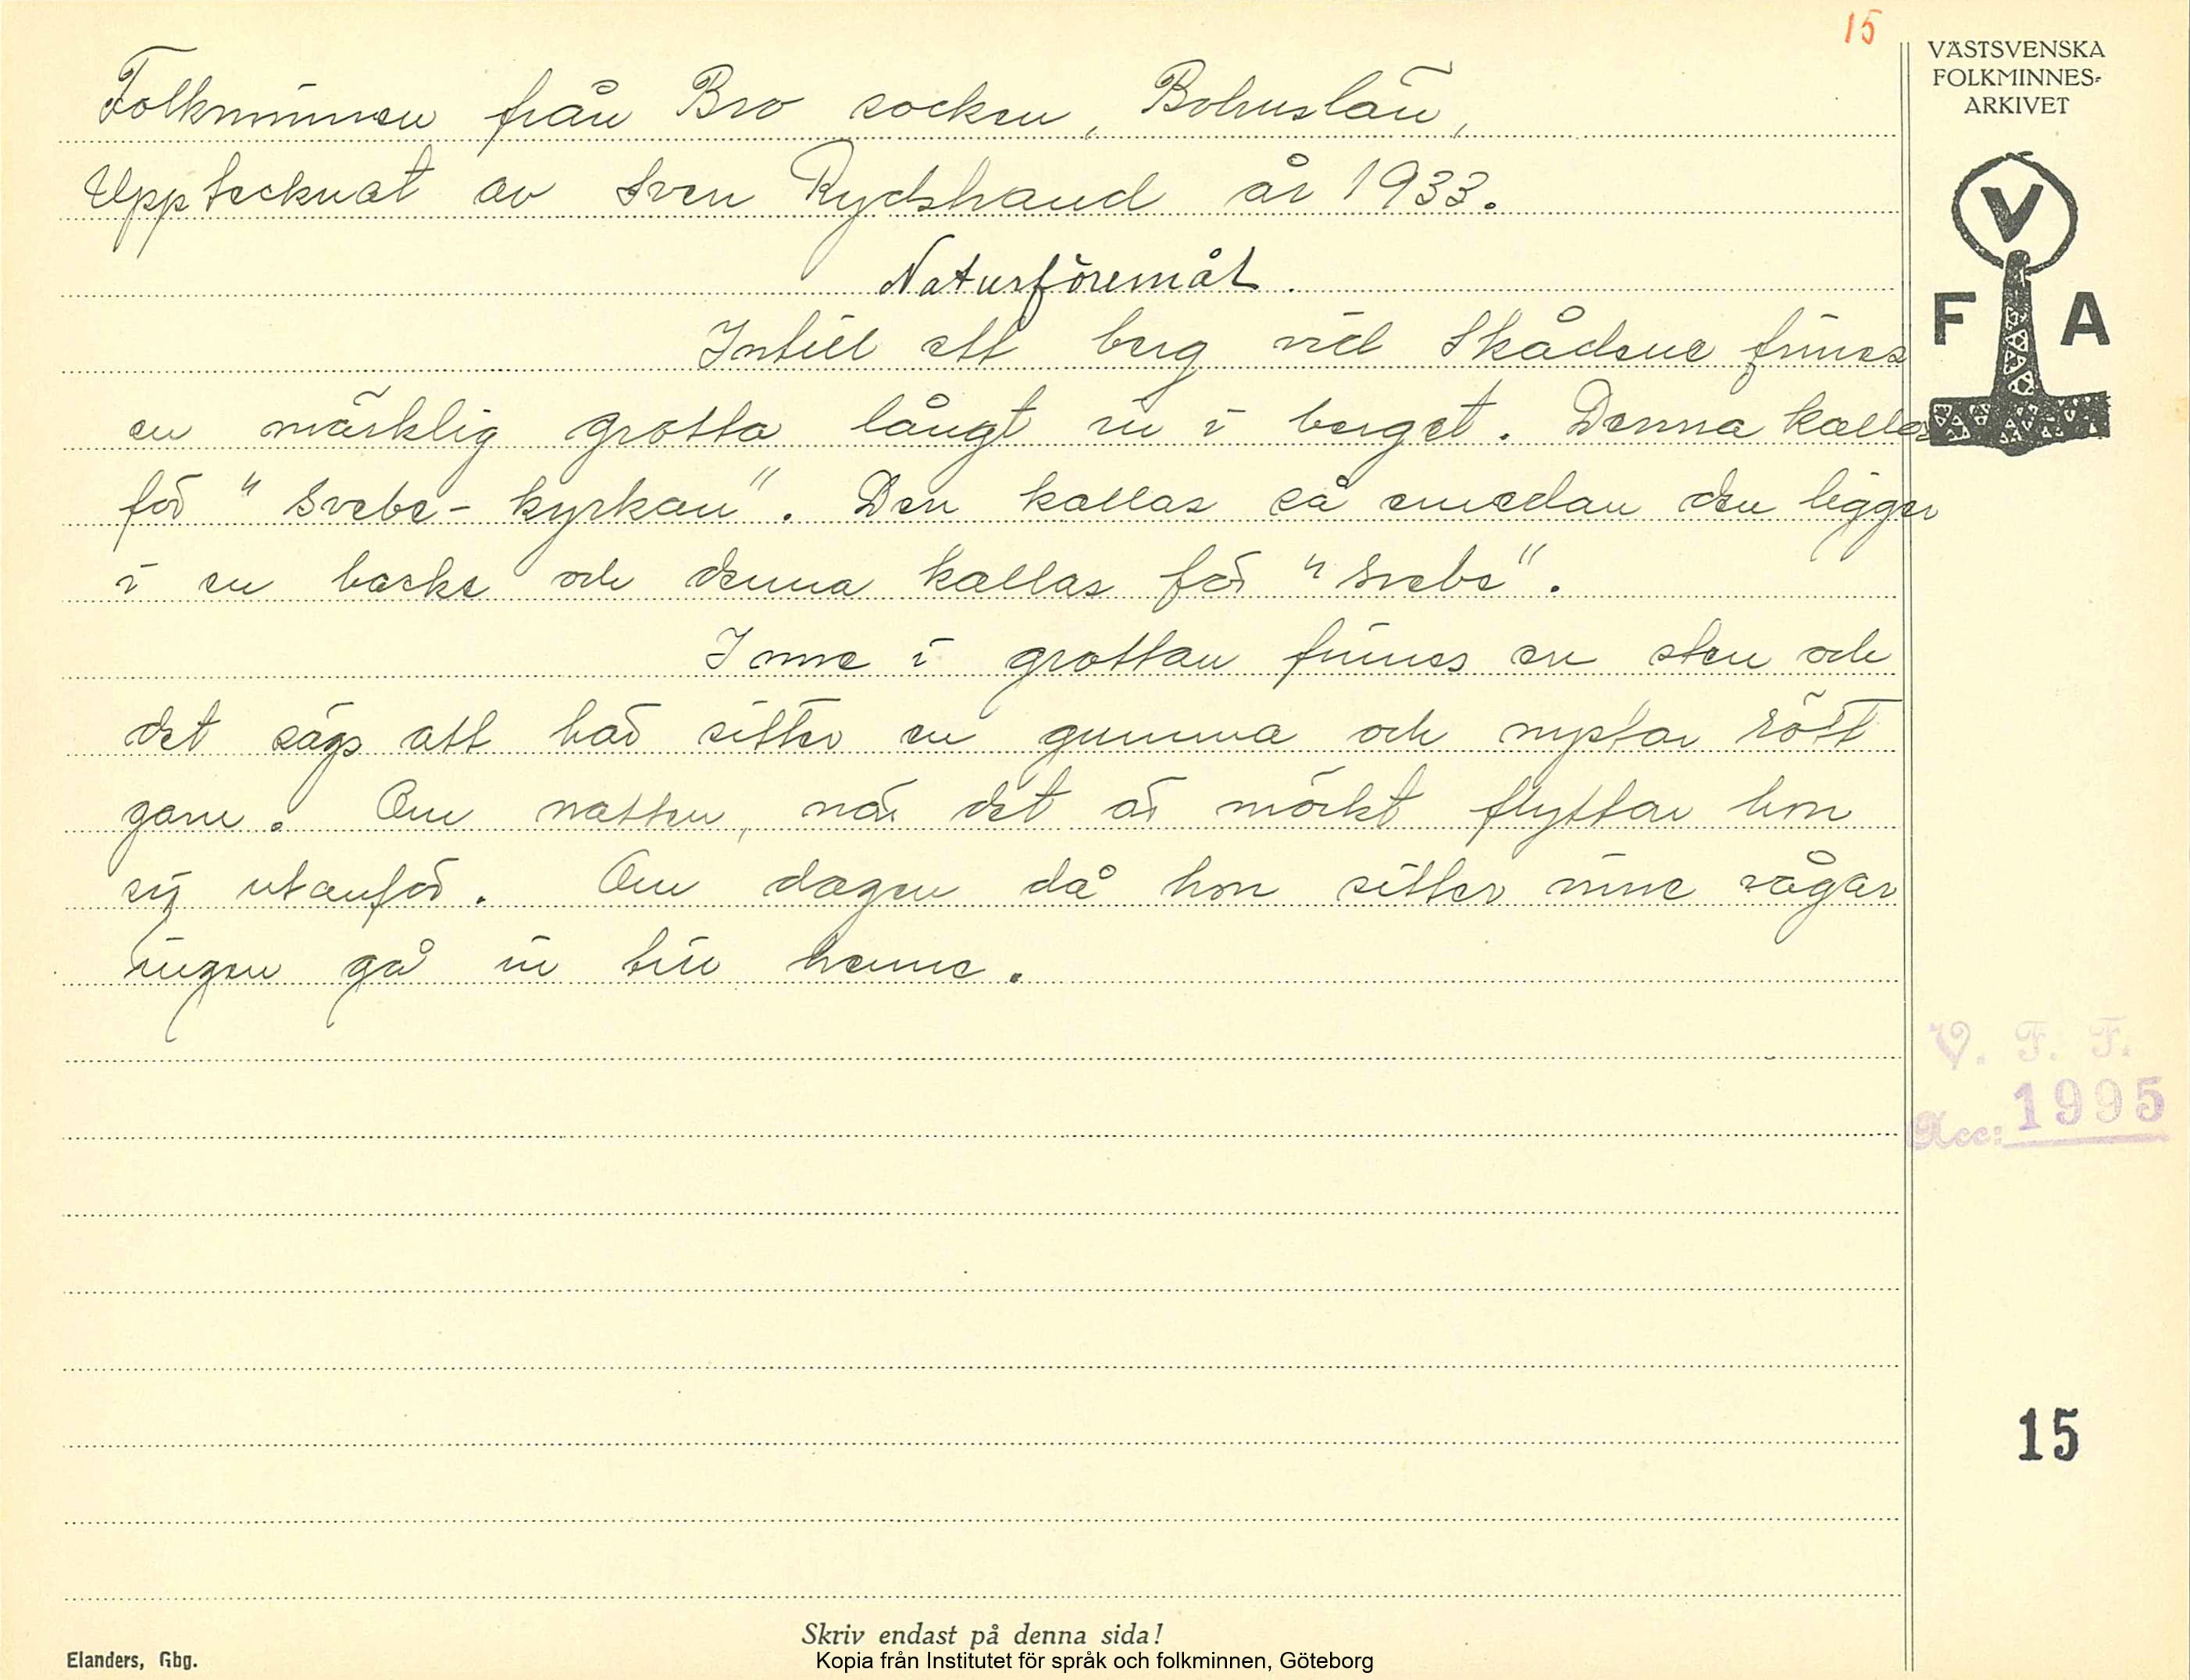 15
VÄSTSVENSKA
FOLKMINNES-
ARKIVET
V
F A
Folkminnen från Bro socken, Bohuslän,
Upptecknat av Sven Rydstrand år 1933.
Naturföremål.
Intill ett berg vid Skådene finnes
en märklig grotta långt in i berget. Denna kallas
för "Svebe-kyrkan". Den kallas så emedan den ligger
i en backe och denna kallas för "Svebe".
Inne i grottan finnes en sten och
det sägs att här sitter en gumma och nystar rött
garn. Om natten, när det är mörkt flyttar hon
sig utanför. Om dagen då hon sitter inne vågar
ingen gå in till henne.
V. F. F.
Acc: 1995
15
Skriv endast på denna sida!
Elanders, Gbg.
Kopia från Institutet för språk och folkminnen, Göteborg